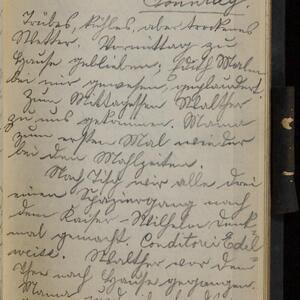 Sonntag.
Trübes, kühles, aber trockenes
Wetter. Vormittag zu
Hause geblieben; Edith Mal
bei mir gewesen, geplaudert.
Zum Mittagessen Walther
zu uns gekommen. Mama
zum ersten Mal wieder
bei den Mahlzeiten.
Nach Tisch wir alle drei
einen Spaziergang nach
dem Kaiser-Wilhelm Denk
mal gemacht. Conditorei Edel
weiss. Walther vor dem
Thee nach Hause gegangen.
Mama